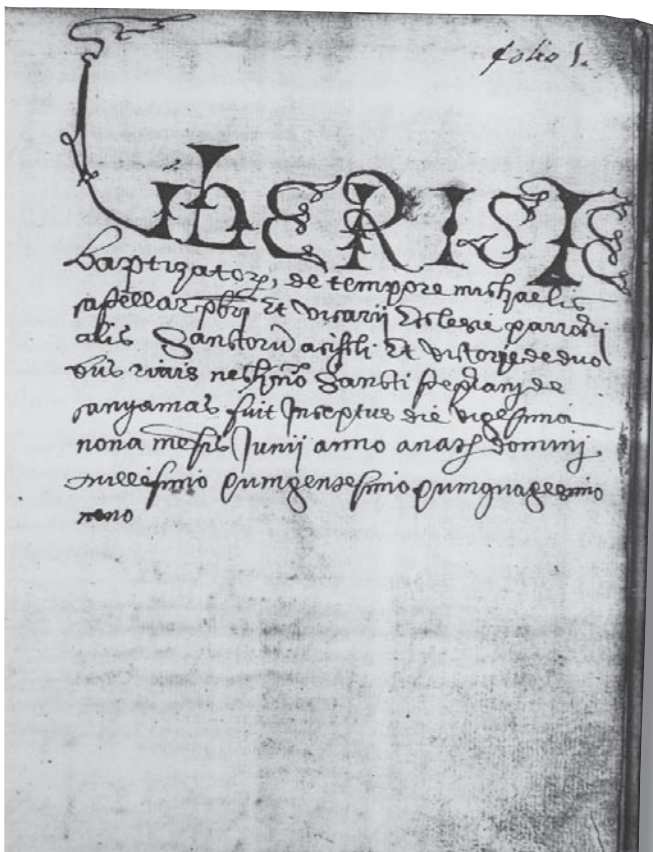 folio 1.
LIBER ISTE
baptizatorꝝ, de tempore michaelis
capellar pbrj Et vicarij Eclesie parrochj
alis Sanctorũ aciscli Et victorie de duo
bus riuis nec
Sancti
de
canyamas fuit Inceptus die vigesima
nona mẽsis Junij anno a naꝭ domini
millesimo quingentesimo quinquagesimo
nono